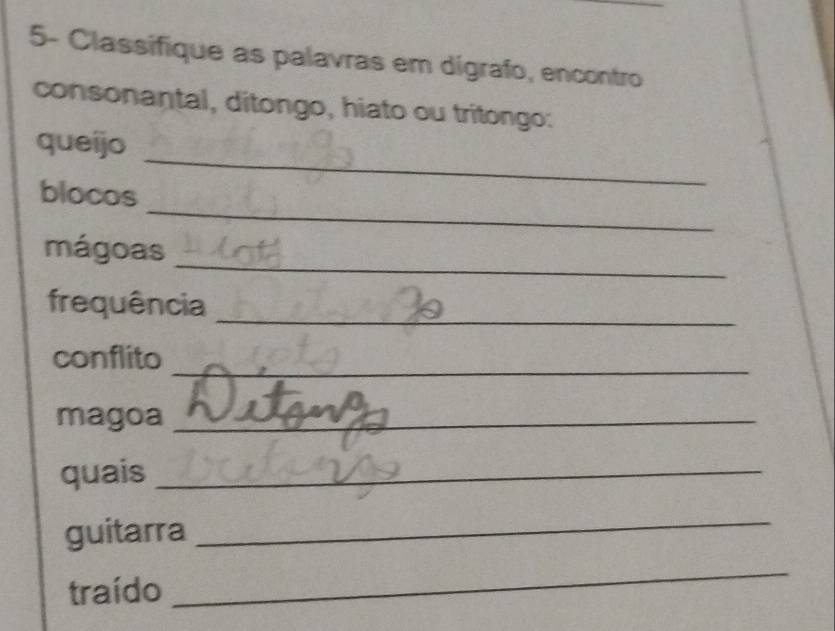 5- Classifique as palavras em dígrafo, encontro
consonantal, ditongo, hiato ou tritongo:
queijo
blocos
mágoas
frequência
conflito
magoa Ditongo
quais
guitarra
traído